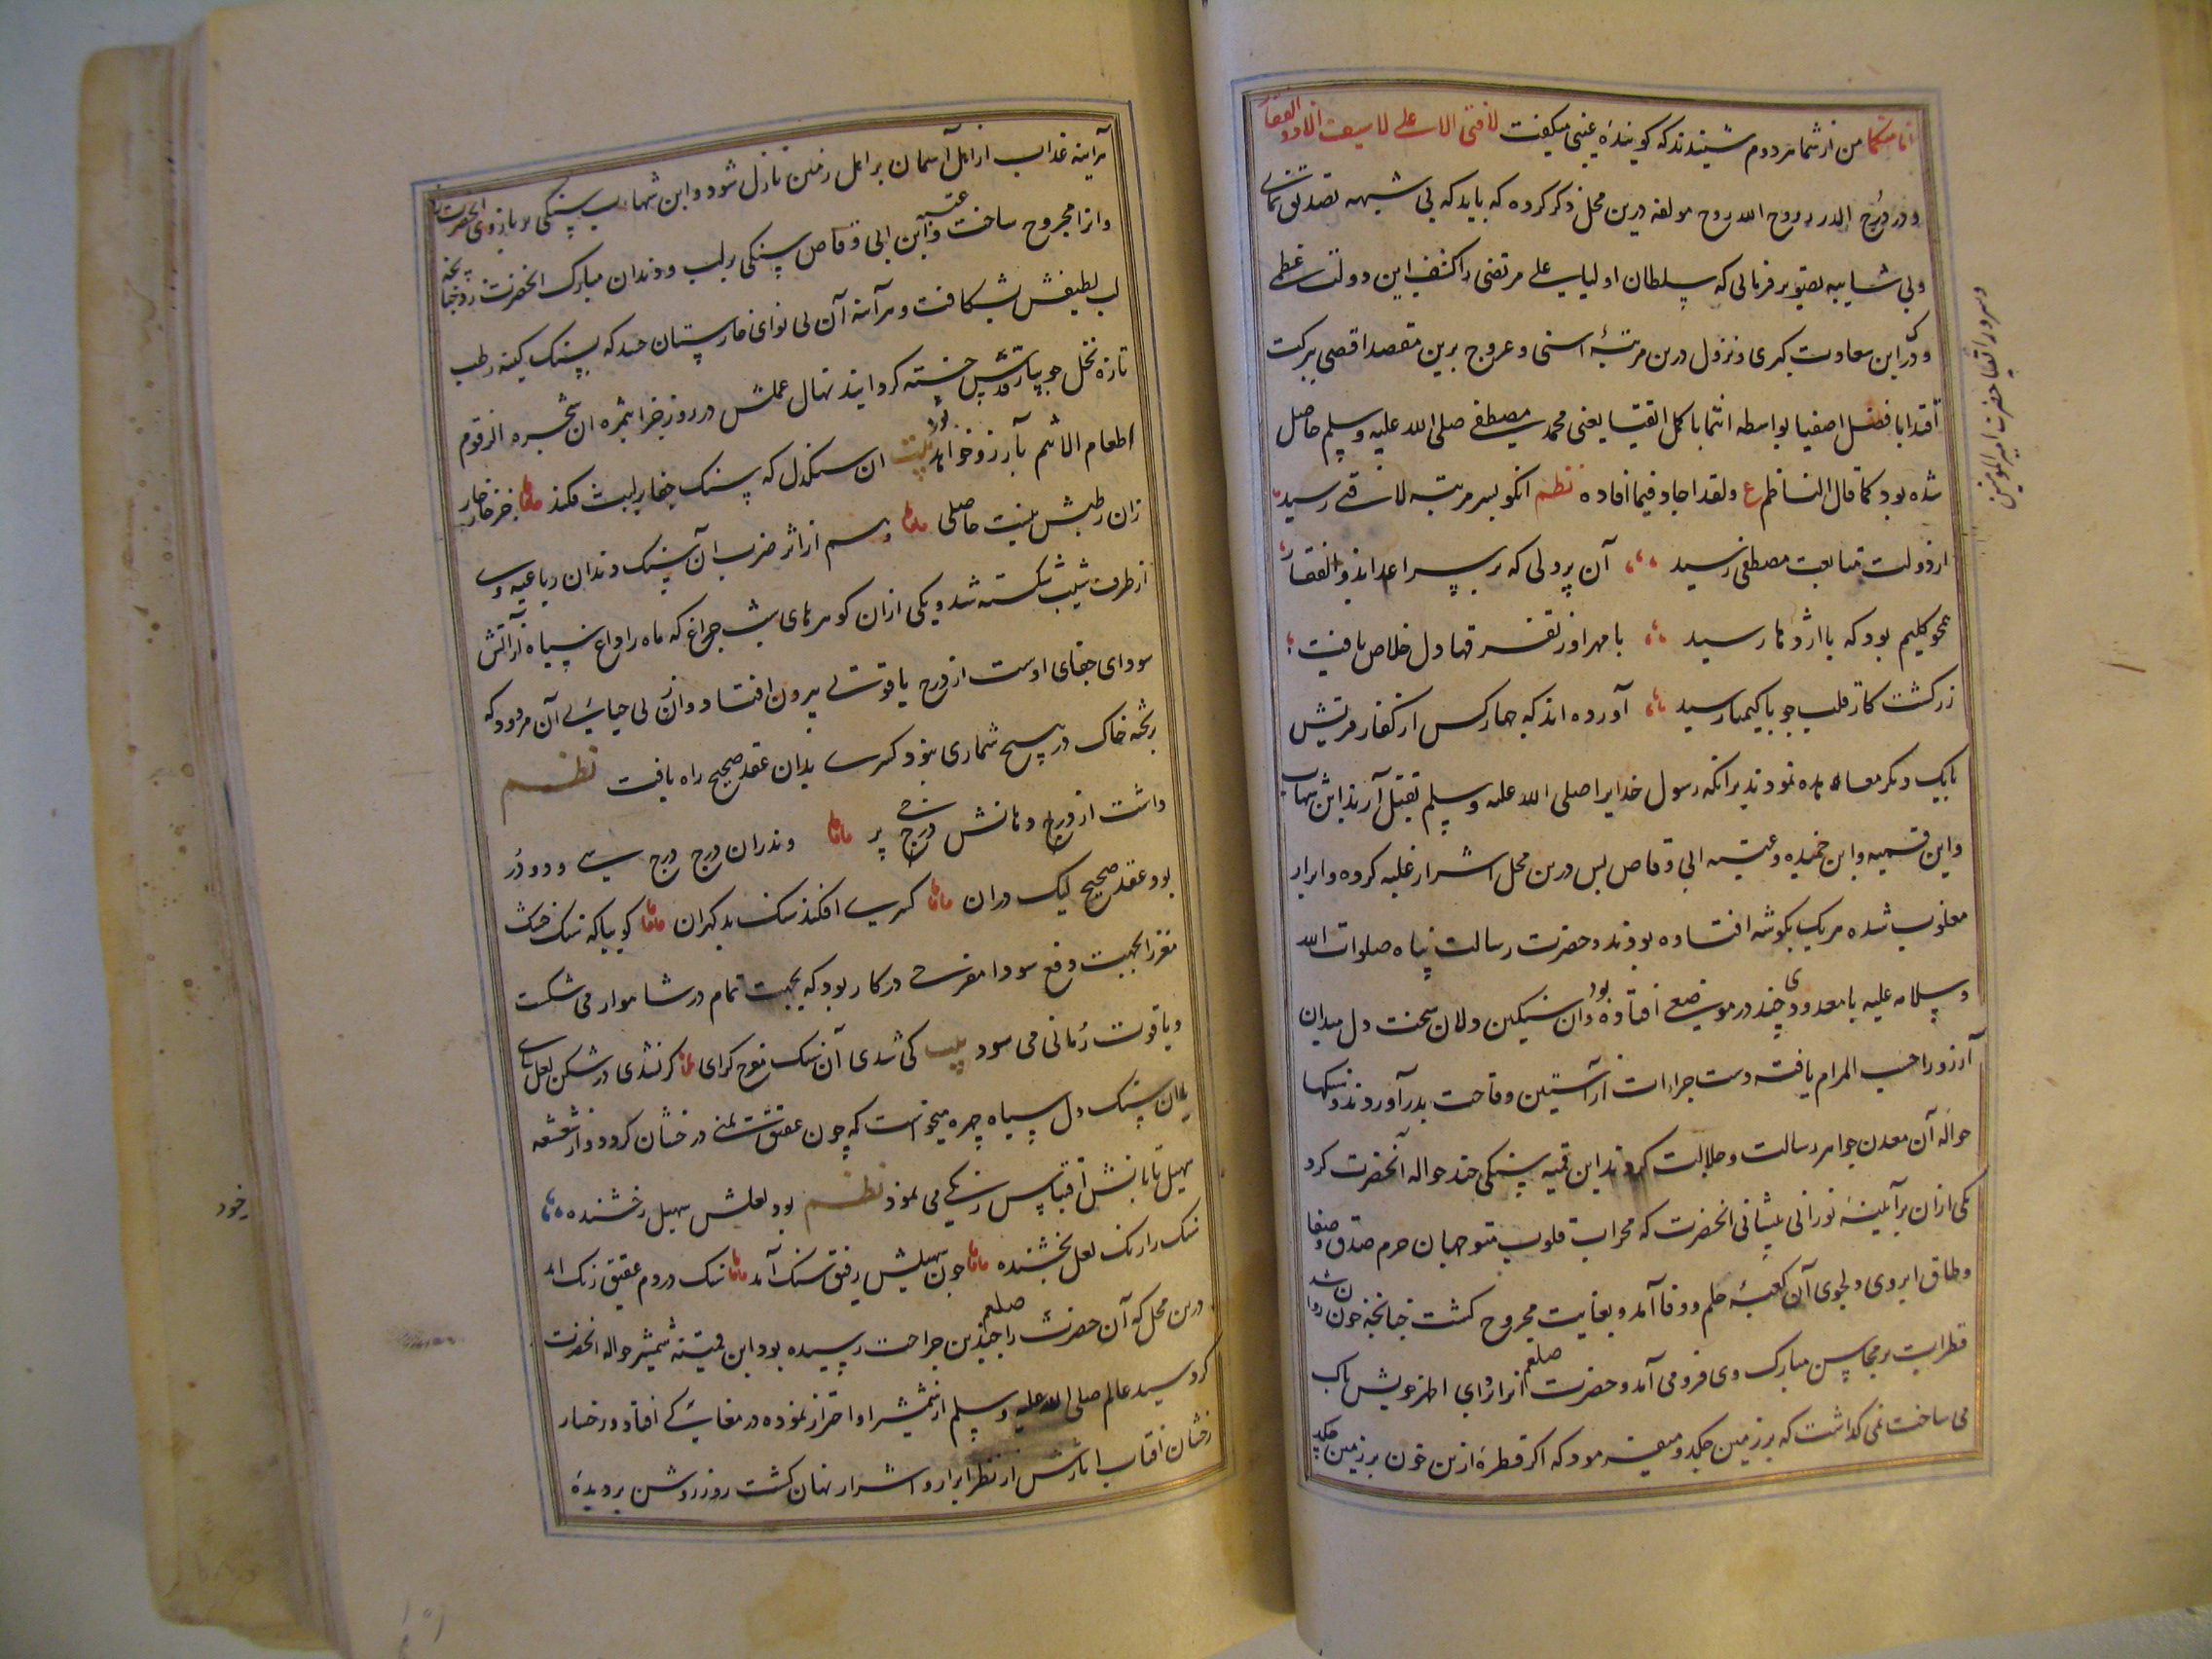 انا منکما من از شما مردم شنیدند که کویندهٔ غیبی میکفت لا فتی الا علی لا سیف الا ذو الفقار
و در درج الدرر روح الله روح مولفه درین محل ذکر کرده که باید که بی شبهه تصدیق نمائی
و بی شایبه تصویر فرمائی که سلطان اولیا علی مرتضی را کشف این دولت عظمی
و درک این سعادت کبری و نزول درین مرتبهٔ اسنی و عروج برین مقصد اقصی ببرکت
اقتدا بافضل اصفیا بواسطه انتما باکمل اتقیا یعنی محمد مصطفی صلی الله علیه وسلم حاصل
شده بود کما قال الناظم ع ولقد اجاد فیما افاده نظم انکو بسر مرتبه لا فتی رسید
از دولت متابعت مصطفی رسید آن پر دلی که بر سر اعدا بذوالفقار
همچو کلیم بود که با اژدها رسید با مهر او ز نقد قها دل خلاص یافت
زر کشت کار قلب چو با کیمیا رسید آورده اند که چهار کس از کفار قریش
با یک دیکر معاهده نمودند بر انکه رسول خدایرا صلی الله علیه وسلم بقتل آرند ابن شهاب
و ابن قمیه و ابن حمیده و عتبه ابی وقاص پس درین محل اشرار غلبه کرده و ابرار
مغلوب شده هر یک بکوشه افتاده بودند و حضرت رسالت پناه صلوات الله
و سلامه علیه با معدودی چند در موضعی افتاده بود و ان سنکین دلان سخت دل میدان
آرزو را حسب المرام یافته دست جراءت از آستین وقاحت بدر آوردند و سنکها
حوالهٔ آن معدن جواهر رسالت و جلالت کردند ابن قمیه سنکی چند حواله آنحضرت کرد
یکی ازان بر آیینهٔ نورانی پیشانی انحضرت که محراب قلوب متوجهان حرم صدق و صفا
و طاق ابروی دلجوی آن کعبهٔ حلم و وفا آمد و بغایت مجروح کشت چنانچه خون روان شد
قطرات بر محاسن مبارک وی فرو می آمد و حضرت صلعم انرا بردای اطهر خویش پاک
می ساخت نمی کذاشت که بر زمین چکد و میفرمود که اکر قطرهٔ ازین خون بر زمین چکد
و سرور اتقیا حضرت امیر المومنین
هرآینه عذاب از اهل آسمان بر اهل زمین نازل شود و ابن شهاب سنکی بر بازوی انحضرت زد
و انرا مجروح ساخت و عتبه ابن ابی وقاص سنکی بر لب و دندان مبارک انحضرت زد چنانچه
لب لطیفش بشکافت و هرآینه آن بی نوای خارستان حسد که بسنک کینه رطب
تازه نخل جویبار قدش خسته کردانید نهال عملش در روز جزا بثمره ان شجره الزقوم
طعام الاثیم بارز و خواهد بود بیت ان سنکدل که سنک جفا بر لبت فکند جز خار
زان رطبش نیست حاصلی و هم از اثر ضرب آن سنک دندان رباعیه وی
از طرف شیب شکسته شد و یکی ازان کوهرهای شب چراغ که ماه را داغ سیاه از آتش
سودای جفای اوست از درج یاقوت بیرون افتاد و ازان بی حیایی آن مردود که
بر تخته خاک در هیچ شماری نبود کسری بدان عقد صحیح راه یافت نظم
داشت از درج دهانش درجی پر وندران درج درج سی و دو در
بود عقد صحیح لیک دران کسری افکند سنک بدکهران کوییا که سنک خشک
مغز الجهت دفع سودا مفرحی در کار بود که بجهت تمام در شاهوار می شکست
و یاقوت رمانی می سود بیت کی شدی آن سنک مفرح کرای کر نشدی درشکن لعل سای
یا ان سنک دل سیاه چهره میخواست که چون عقیق یمنی درخشان کردد و از شعشعه
سهیل تابانش اقتباس رنکی می نمود نظم بود لعلش سهیل رخشنده
سنک را رنک لعل بخشنده چون سهیلش رفیق سنک آمد سنک در دم عقیق رنک امد
درین محل که آن حضرت صلعم را چندین جراحت رسیده بود ابن قمیه شمشیر حواله انحضرت
کرد سید عالم صلی الله علیه وسلم از شمشیر او احتراز نموده در مغاکی افتاد و رخسار
رخشان افتاب اثارش از نظر ابرار و اشرار نهان کشت روز روشن بر دیدهٔ
خود